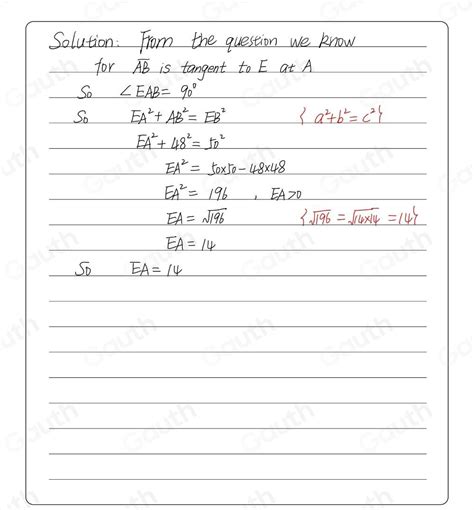 Solution: From the question we know
for AB is tangent to E at A
So ∠EAB = 90°
So EA² + AB² = EB² { a²+b² = c² }
EA² + 48² = 50²
EA² = 50×50 - 48×48
EA² = 196 , EA>0
EA = √196 { √196 = √14×14 = 14 }
EA = 14
So EA = 14
Gauth